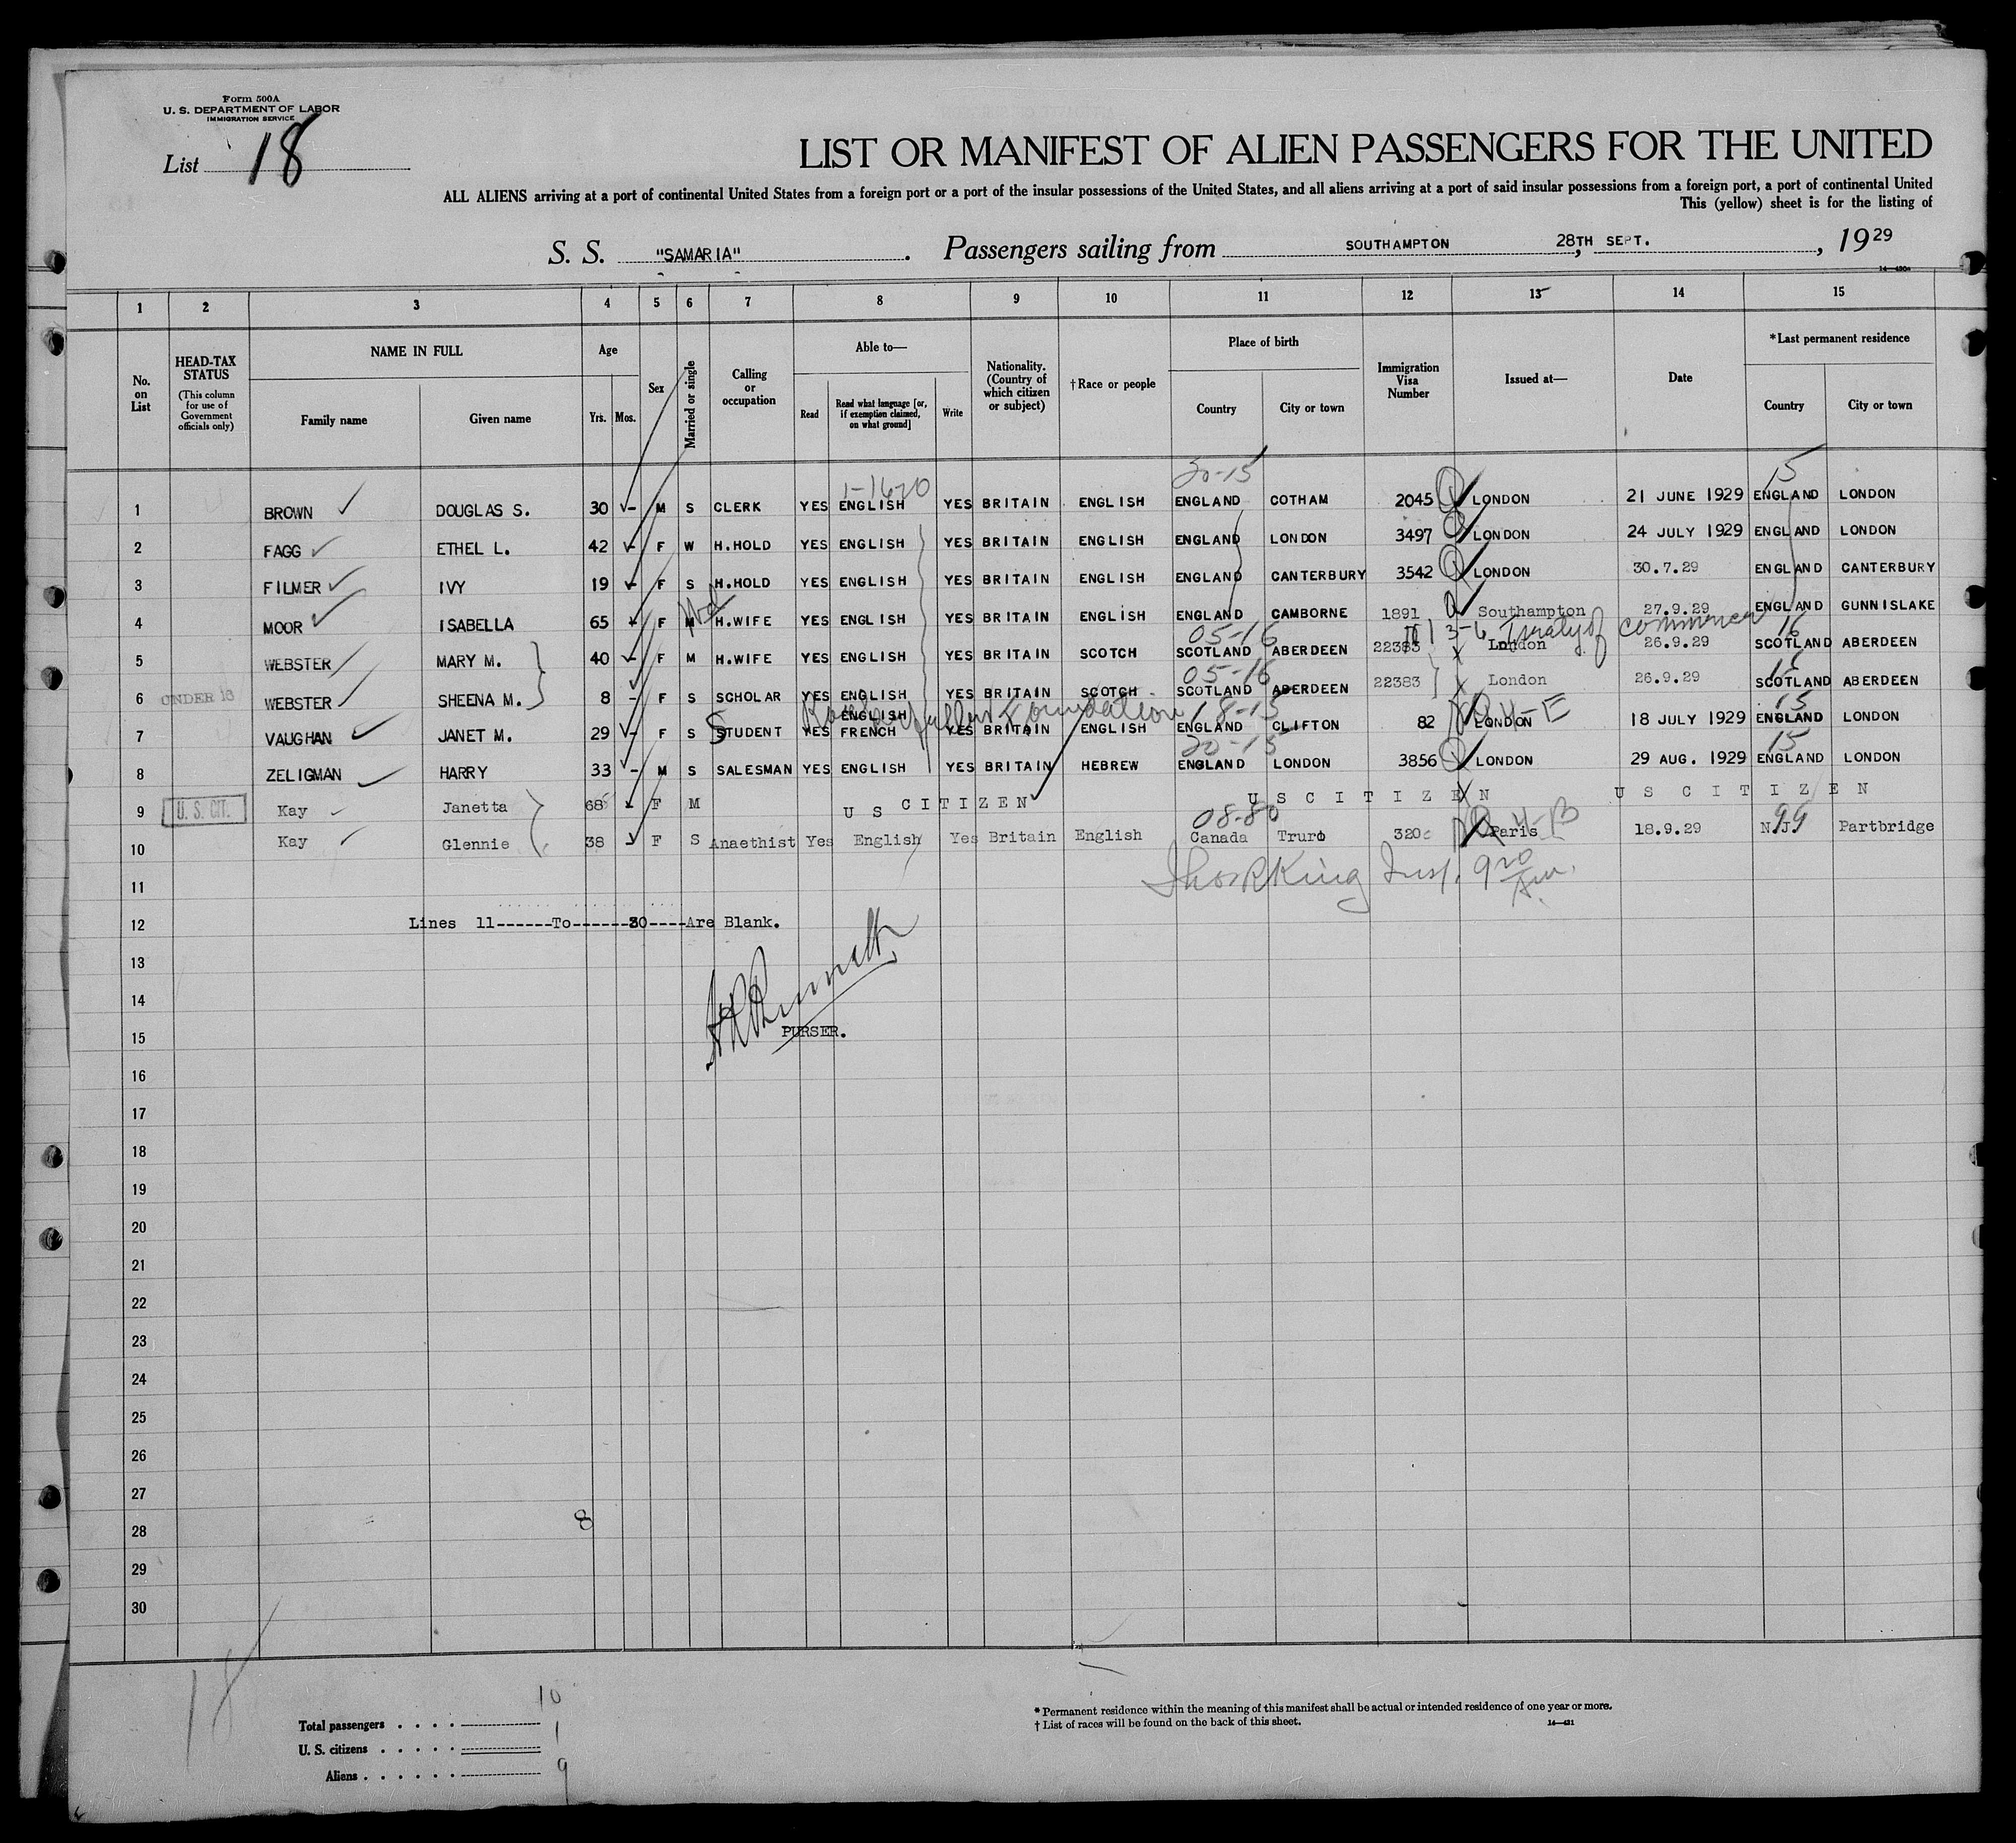 Form 500A
U. S. DEPARTMENT OF LABOR
IMMIGRATION SERVICE
List 18
LIST OR MANIFEST OF ALIEN PASSENGERS FOR THE UNITED
ALL ALIENS arriving at a port of continental United States from a foreign port or a port of the insular possessions of the United States, and all aliens arriving at a port of said insular possessions from a foreign port, a port of continental United
This (yellow) sheet is for the listing of
S. S. "SAMARIA". Passengers sailing from SOUTHAMPTON 28TH SEPT., 1929
1 2 3 4 5 6 7 8 9 10 11 12 13 14 15
No. on List
HEAD-TAX STATUS (This column for use of Government officials only)
NAME IN FULL Family name Given name
Age Yrs. Mos.
Sex
Married or single
Calling or occupation
Able to— Read Read what language [or, if exemption claimed, on what ground] Write
Nationality. (Country of which citizen or subject)
†Race or people
Place of birth Country City or town
Immigration Visa Number
Issued at—
Date
*Last permanent residence Country City or town
30-15 15
1 BROWN DOUGLAS S. 30 - M S CLERK YES ENGLISH YES BRITAIN ENGLISH ENGLAND COTHAM 2045 LONDON 21 JUNE 1929 ENGLAND LONDON
2 FAGG ETHEL L. 42 - F W H.HOLD YES ENGLISH YES BRITAIN ENGLISH ENGLAND LONDON 3497 LONDON 24 JULY 1929 ENGLAND LONDON
3 FILMER IVY 19 - F S H.HOLD YES ENGLISH YES BRITAIN ENGLISH ENGLAND CANTERBURY 3542 LONDON 30.7.29 ENGLAND CANTERBURY
4 MOOR ISABELLA 65 - F M Wd H.WIFE YES ENGLISH YES BRITAIN ENGLISH ENGLAND CAMBORNE 1891 Southampton 27.9.29 ENGLAND GUNNISLAKE
05-16 3-6 Treaty of Commerce 16
5 WEBSTER MARY M. 40 - F M H.WIFE YES ENGLISH YES BRITAIN SCOTCH SCOTLAND ABERDEEN 22383 London 26.9.29 SCOTLAND ABERDEEN
05-16
6 UNDER 16 WEBSTER SHEENA M. 8 - F S SCHOLAR YES ENGLISH YES BRITAIN SCOTCH SCOTLAND ABERDEEN 22383 London 26.9.29 SCOTLAND ABERDEEN
Rockefeller Foundation 18-15 4-E 15
7 VAUGHAN JANET M. 29 - F S STUDENT YES ENGLISH FRENCH YES BRITAIN ENGLISH ENGLAND CLIFTON 82 LONDON 18 JULY 1929 ENGLAND LONDON
20-15 15
8 ZELIGMAN HARRY 33 - M S SALESMAN YES ENGLISH YES BRITAIN HEBREW ENGLAND LONDON 3856 LONDON 29 AUG. 1929 ENGLAND LONDON
9 U.S. CIT. Kay Janetta 68 - F M U S CITIZEN U S C I T I Z E N U S C I T I Z E N
08-80 4-B 99
10 Kay Glennie 38 - F S Anaethist Yes English Yes Britain English Canada Truro 320 Paris 18.9.29 N.J. Partbridge
11
12 Lines 11------To------30----Are Blank.
13
14
15 PURSER.
16
17
18
19
20
21
22
23
24
25
26
27
28 8
29
30
18
Total passengers . . . . 10
U. S. citizens . . . . . 1
Aliens . . . . . . 9
* Permanent residence within the meaning of this manifest shall be actual or intended residence of one year or more.
† List of races will be found on the back of this sheet. 14—421